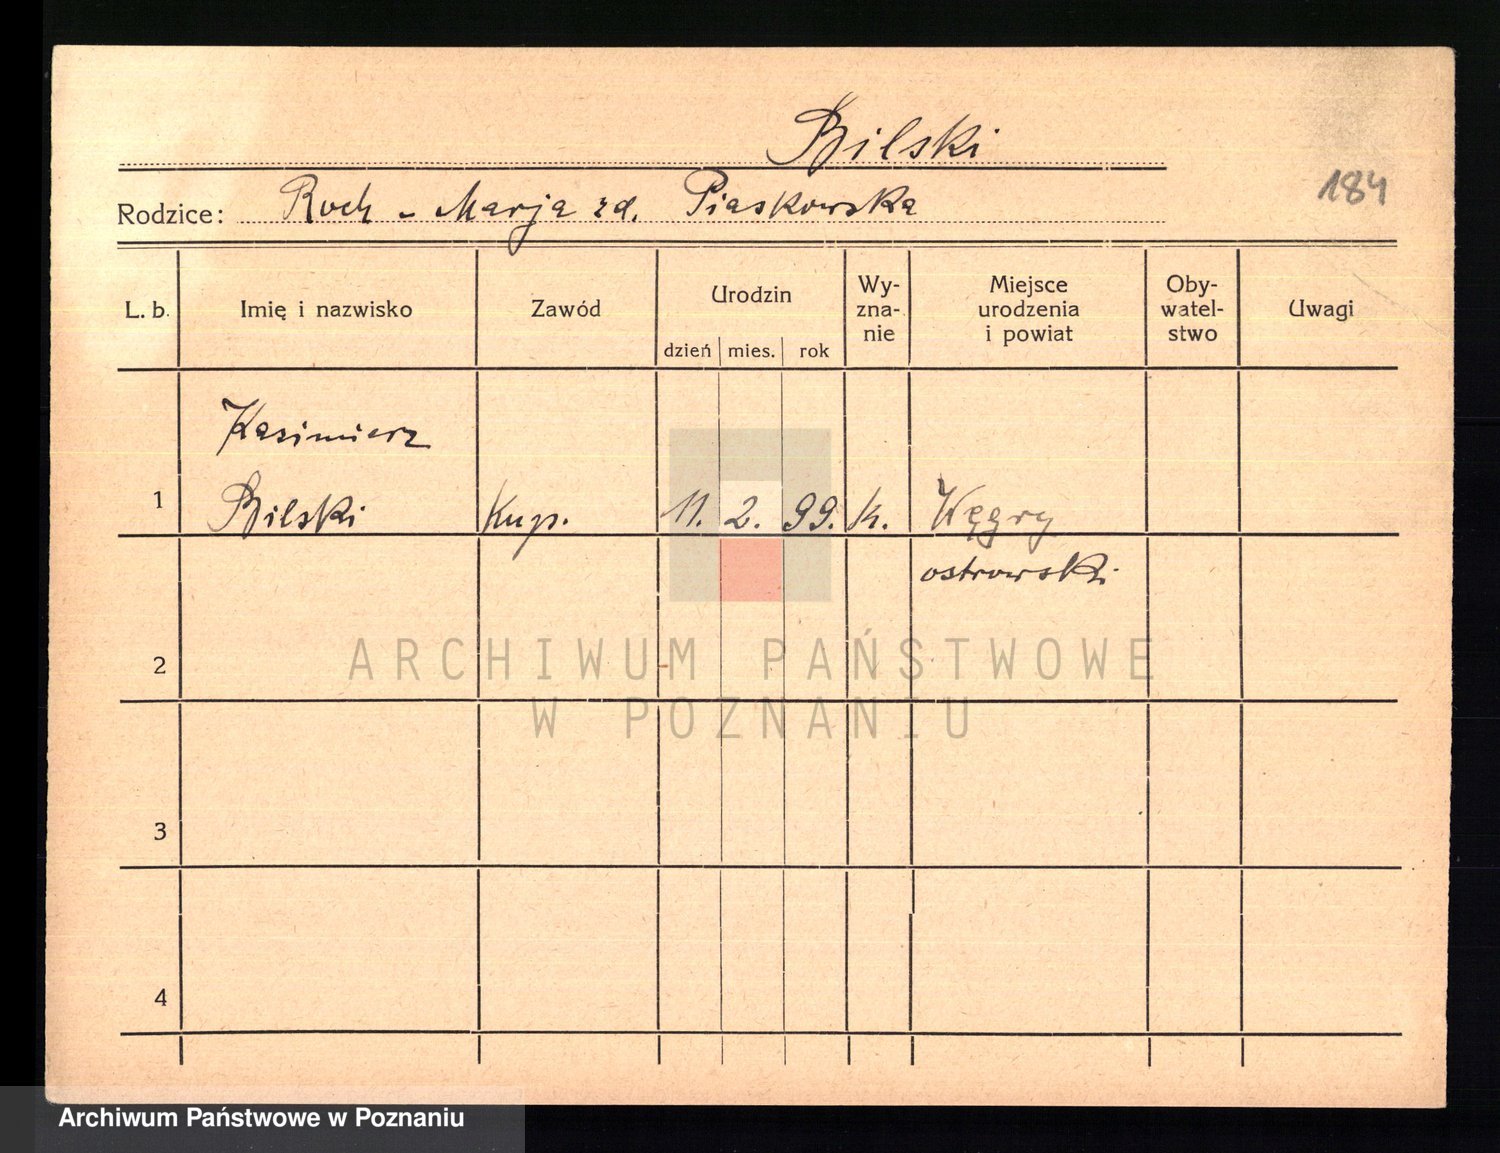 Bilski
184
Rodzice: Roch - Marja zd. Piaskowska
L. b. Imię i nazwisko Zawód Urodzin dzień mies. rok Wy-zna-nie Miejsce urodzenia i powiat Oby-watel-stwo Uwagi
Kazimierz
1 Bilski Kup. 11. 2. 99. k. Węgry
ostrowski
2
ARCHIWUM PAŃSTWOWE
W POZNANIU
3
4
Archiwum Państwowe w Poznaniu